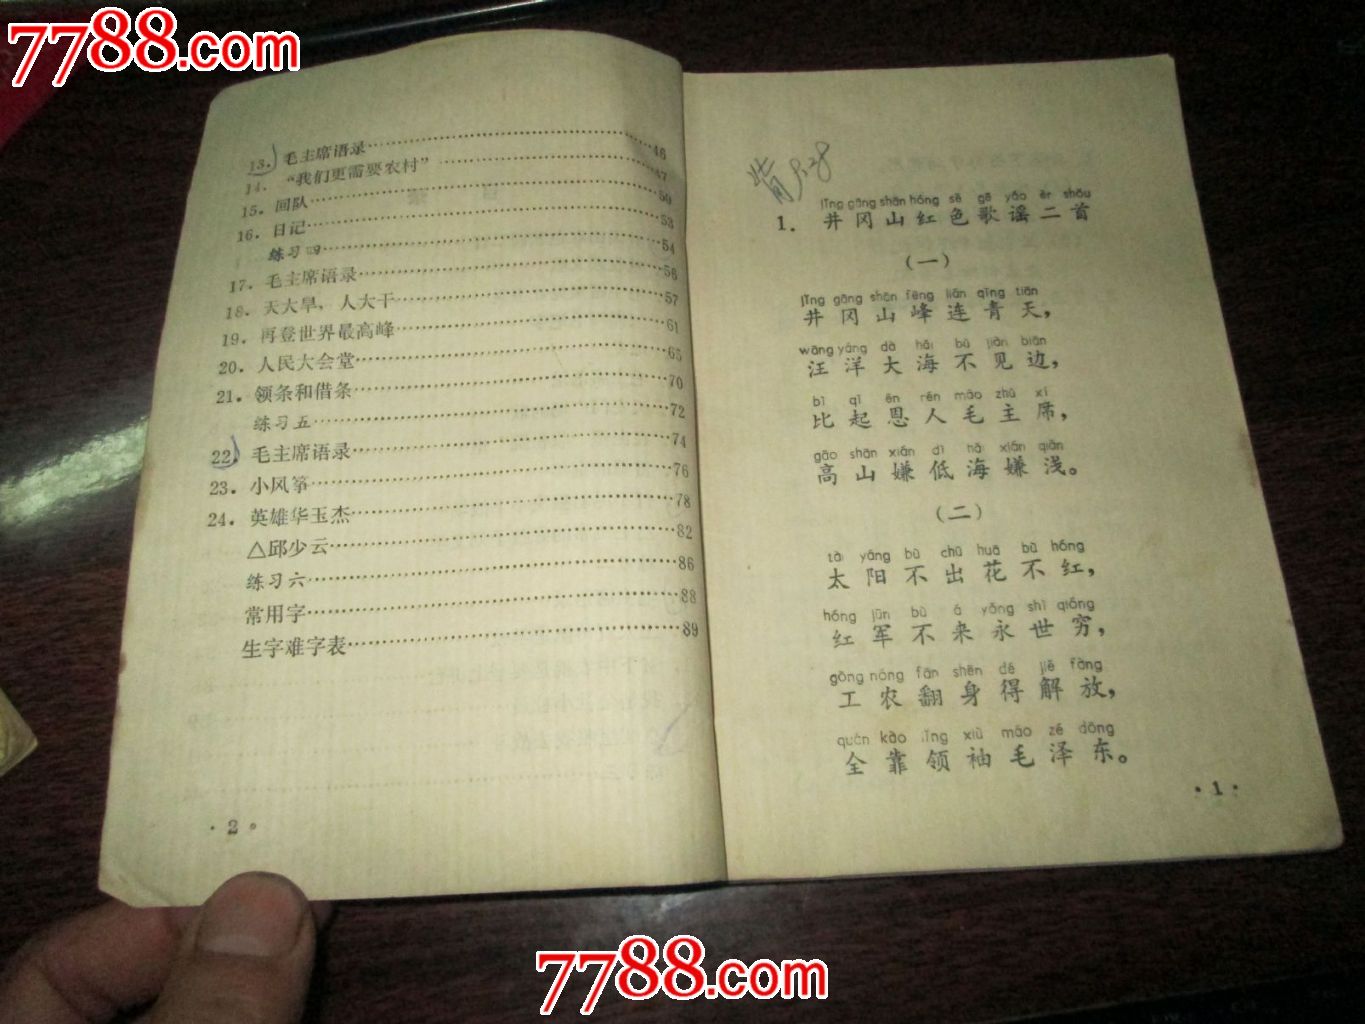 7788.com
7788.com
13. 毛主席语录 46
14. “我们更需要农村” 47
15. 回队 50
16. 日记 53
练习四 54
17. 毛主席语录 56
18. 天大旱，人大干 57
19. 再登世界最高峰 61
20. 人民大会堂 65
21. 领条和借条 70
练习五 72
22. 毛主席语录 74
23. 小风筝 76
24. 英雄华玉杰 78
△邱少云 82
练习六 86
常用字 88
生字难字表 89
·2·
jǐng gāng shān hóng sè gē yáo èr shǒu
1. 井冈山红色歌谣二首
（一）
jǐng gāng shān fēng lián qīng tiān
井冈山峰连青天，
wāng yáng dà hǎi bú jiàn biān
汪洋大海不见边，
bǐ qǐ ēn rén máo zhǔ xí
比起恩人毛主席，
gāo shān xián dī hǎi xián qiǎn
高山嫌低海嫌浅。
（二）
tài yáng bù chū huā bù hóng
太阳不出花不红，
hóng jūn bù lái yǒng shì qióng
红军不来永世穷，
gōng nóng fān shēn dé jiě fàng
工农翻身得解放，
quán kào lǐng xiù máo zé dōng
全靠领袖毛泽东。
·1·
7788.com